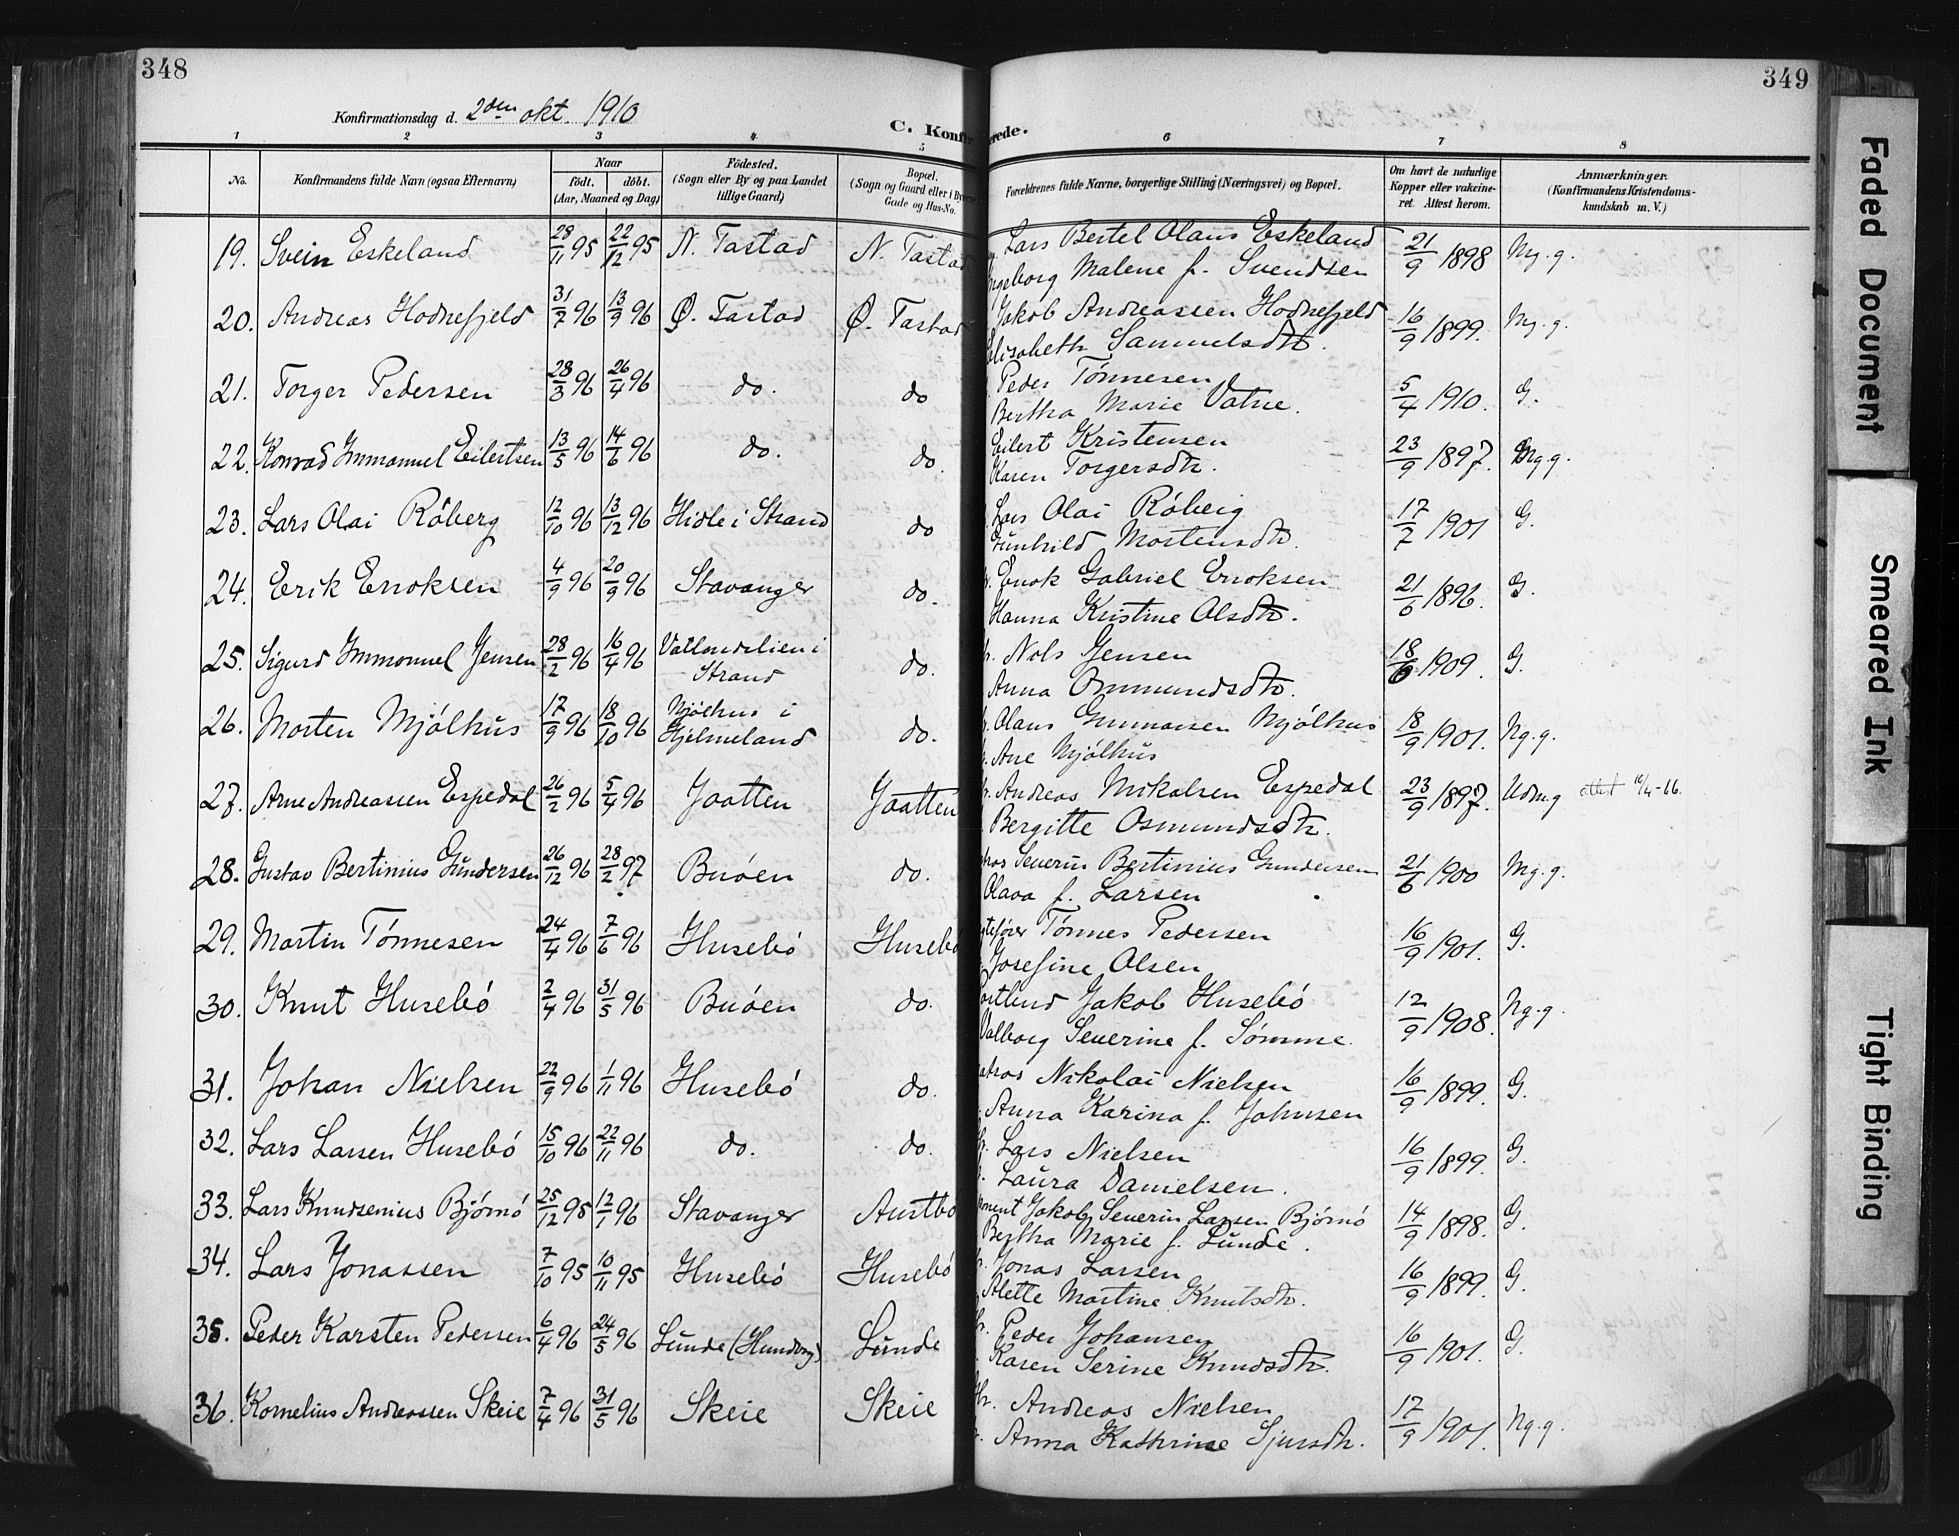 348
349
Konfirmationsdag d. 2den okt. 1910
C. Konfirmerede.
1 2 3 4 5 6 7 8
No.
Konfirmandens fulde Navn (ogsaa Efternavn)
Naar
födt. döbt.
(Aar, Maaned og Dag)
Födested.
(Sogn eller By og paa Landet
tillige Gaard)
Bopæl.
(Sogn og Gaard eller i Byerne
Gade og Hus-No.
Forældrenes fulde Navne, borgerlige Stilling (Næringsvei) og Bopæl.
Om havt de naturlige
Kopper eller vakcine-
ret. Attest herom.
Anmærkninger.
(Konfirmandens Kristendoms-
kundskab m. V.)
19. Svein Eskeland 28/11 95 22/12 95 N. Tastad N. Tastad Lars Bertel Olaus Eskeland 21/9 1898 Mg. g.
Ingeborg Malene f. Svendsen
20. Andreas Hodnefjeld 31/7 96 13/9 96 Ø. Tastad Ø. Tastad Jakob Andreassen Hodnefjeld 16/9 1899. Mg. g.
Elisabeth Samuelsdtr.
21. Torger Pedersen 28/3 96 26/4 96 do. do Peder Tønnesen 5/4 1910. G.
Bertha Marie Vatne.
22. Konrad Immanuel Eilertsen 13/5 96 14/6 96 do. do. Eilert Kristensen 23/9 1897. Mg. g.
Karen Torgersdtr.
23. Lars Olai Röberg 12/10 96 13/12 96 Hidle i Strand do Lars Olai Röberg 17/7 1901 G.
Gunhild Mortensdtr.
24. Erik Enoksen 4/9 96 20/9 96 Stavanger do. Enok Gabriel Enoksen 21/6 1896. G.
Hanna Kristine Olsdtr.
25. Sigurd Immanuel Jensen 28/2 96 16/4 96 Vatlandslien i do. Nels Jensen 18/6 1909. G.
Strand
Anna Ommundsdtr.
26. Morten Mjölhus 17/9 96 18/10 96 Mjölhus i do. Olaus Gunnarsen Mjölhus 18/9 1901. Ng. g.
Hjelmeland
Ane Mjölhus
27. Arne Andreassen Espedal 26/2 96 5/4 96 Jaatten Jaatten Andreas Mikalsen Espedal 23/9 1897. Udm. g attest 10/4-16.
Bergitte Osmundsdtr.
28. Gustav Bertinius Gundersen 26/12 96 28/2 97 Buöen do. Severin Bertinius Gundersen 21/6 1900 Mg. g.
Olava f. Larsen
29. Martin Tönnesen 24/4 96 7/6 96 Husebö Husebö Tönnes Pedersen 16/9 1901. G.
Josefine Olsen
30. Knut Husebö 2/4 96 31/5 96 Buöen do. Jakob Husebö 12/9 1908. Ng. g.
Valborg Severine f. Sömme.
31. Johan Nielsen 22/9 96 1/11 96 Husebö do. Nikolai Nielsen 16/9 1899. G.
Anna Karina f. Johnsen
32. Lars Larsen Husebö 15/10 96 22/11 96 do. do. Lars Nielsen 16/9 1899. G.
Laura Danielsen.
33. Lars Knudsenius Björnö 25/12 95 12/1 96 Stavanger Austbö Jakob Severin Larsen Björnö 14/9 1898. G.
Bertha Marie f. Lunde.
34. Lars Jonassen 7/10 95 10/11 95 Husebö Husebö Jonas Larsen 16/9 1899. G.
Alette Martine Knutsdtr.
35. Peder Karsten Pedersen 6/4 96 24/5 96 Lunde (Hundvaag) Lunde Peder Johansen 16/9 1901. G.
Karen Serine Knudsdtr.
36. Kornelius Andreassen Skeie 7/4 96 31/5 96 Skeie Skeie Andreas Nielsen 17/9 1901. Ng. g.
Anna Kathrine Sjursdtr.
Faded Document
Smeared Ink
Tight Binding